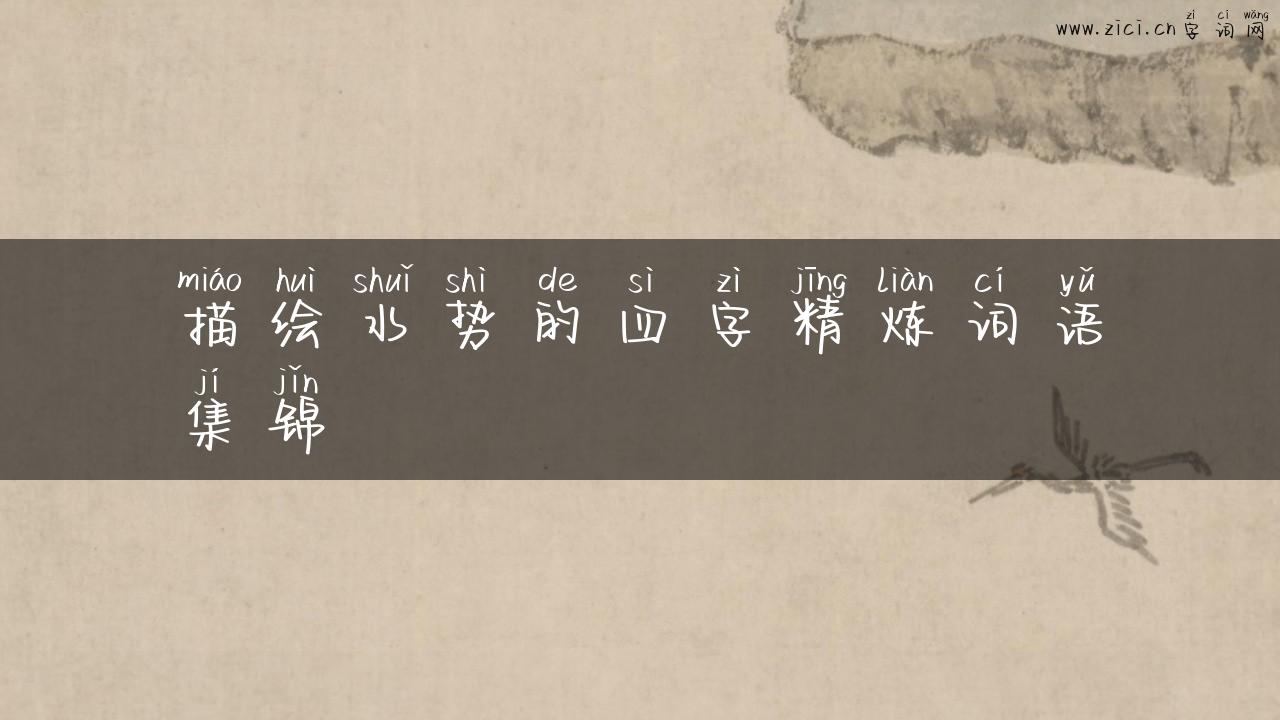 zì cí wǎng
www.zici.cn 字词网
miáo huì shuǐ shì de sì zì jīng liàn cí yǔ
描绘水势的四字精炼词语
jí jǐn
集锦